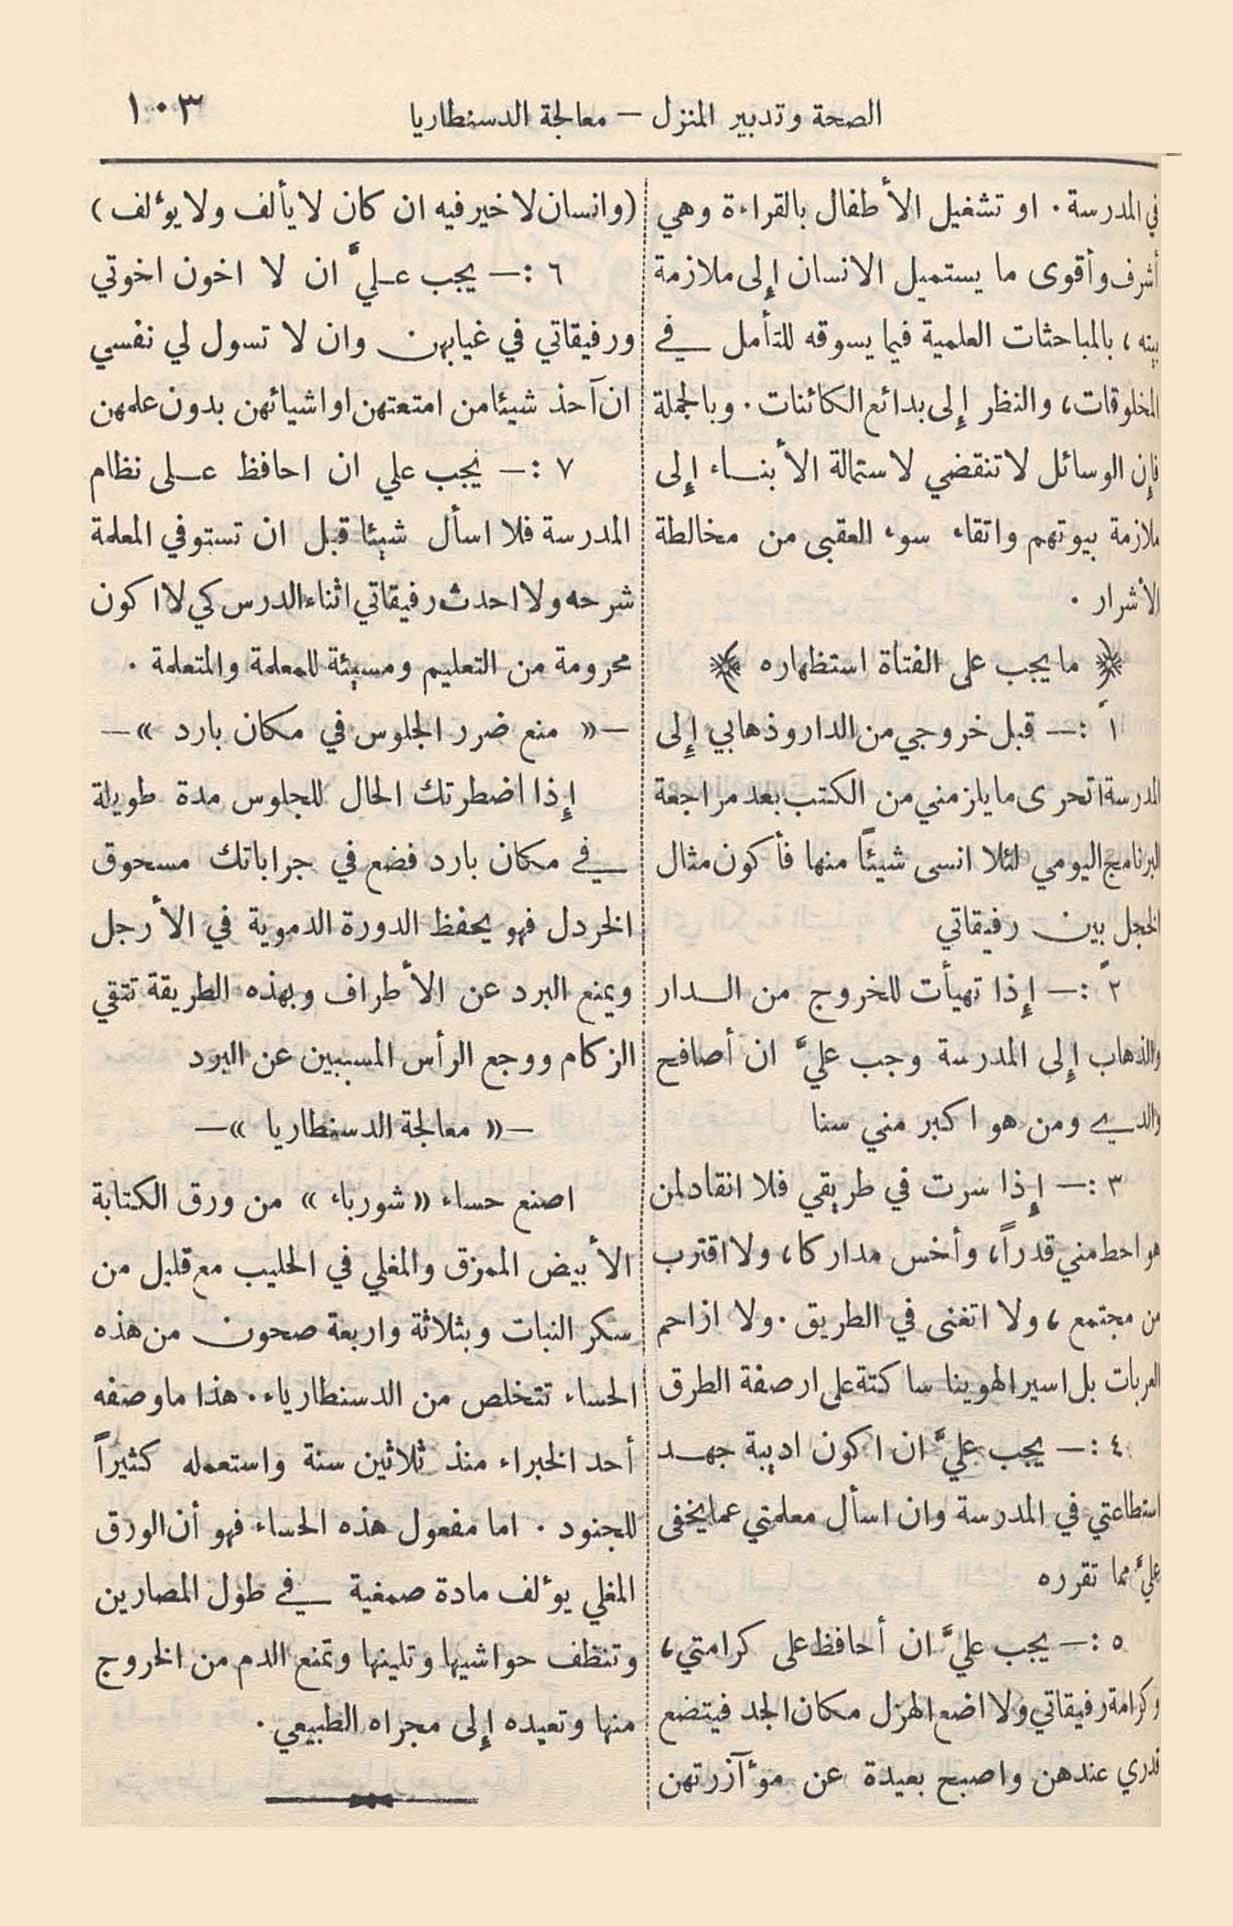 الصحة وتدبير المنزل — معالجة الدسنطاريا
١٠٣
في المدرسة . او تشغيل الأطفال بالقراءة وهي
أشرف وأقوى ما يستميل الانسان إلى ملازمة
بيته ، بالمباحثات العلمية فيما يسوقه للتأمل في
المخلوقات ، والنظر إلى بدائع الكائنات . وبالجملة
فإن الوسائل لا تنقضي لاستمالة الأبناء إلى
ملازمة بيوتهم واتقاء سوء العقبى من مخالطة
الأشرار .
ما يجب على الفتاة استظهاره
١ً :— قبل خروجي من الدار وذهابي إلى
المدرسة اتحرى ما يلزمني من الكتب بعد مراجعة
البرنامج اليومي لئلا انسى شيئاً منها فأكون مثال
الخجل بين رفيقاتي
٢ً :— إذا تهيأت للخروج من الدار
والذهاب إلى المدرسة وجب عليَّ ان أصافح
والدي ومن هو اكبر مني سنا
٣ :— إذا سرت في طريقي فلا انقاد لمن
هو احط مني قدراً ، وأخس مداركا ، ولا اقترب
من مجتمع ، ولا اتغنى في الطريق . ولا ازاحم
العربات بل اسير الهوينا ساكتة على ارصفة الطرق
٤ :— يجب عليَّ ان اكون اديبة جهد
استطاعتي في المدرسة وان اسأل معلمتي عما يخفى
عليَّ مما تقرره
٥ :— يجب عليَّ ان أحافظ على كرامتي ،
وكرامة رفيقاتي ولا اضع الهزل مكان الجد فيتضع
قدري عندهن واصبح بعيدة عن موآزرتهن
(وانسان لا خير فيه ان كان لا يألف ولا يوءلف)
٦ :— يجب عليَّ ان لا اخون اخوتي
ورفيقاتي في غيابهن وان لا تسول لي نفسي
ان آخذ شيئا من امتعتهن او اشيائهن بدون علمهن
٧ :— يجب علي ان احافظ على نظام
المدرسة فلا اسأل شيئا قبل ان تستوفي المعلمة
شرحه ولا احدث رفيقاتي اثناء الدرس كي لا اكون
محرومة من التعليم ومسيئة للمعلمة والمتعلمة .
—« منع ضرر الجلوس في مكان بارد »—
إذا اضطرتك الحال للجلوس مدة طويلة
في مكان بارد فضع في جراباتك مسحوق
الخردل فهو يحفظ الدورة الدموية في الأرجل
ويمنع البرد عن الأطراف وبهذه الطريقة تتقي
الزكام ووجع الرأس المسببين عن البرد
—« معالجة الدسنطاريا »—
اصنع حساء « شورباء » من ورق الكتابة
الأبيض الممزق والمغلي في الحليب مع قليل من
سكر النبات وبثلاثة واربعة صحون من هذه
الحساء تتخلص من الدسنطارياء . هذا ما وصفه
أحد الخبراء منذ ثلاثين سنة واستعمله كثيراً
للجنود . اما مفعول هذه الحساء فهو أن الورق
المغلي يوءلف مادة صمغية في طول المصارين
وتنظف حواشيها وتلينها وتمنع الدم من الخروج
منها وتعيده إلى مجراه الطبيعي .